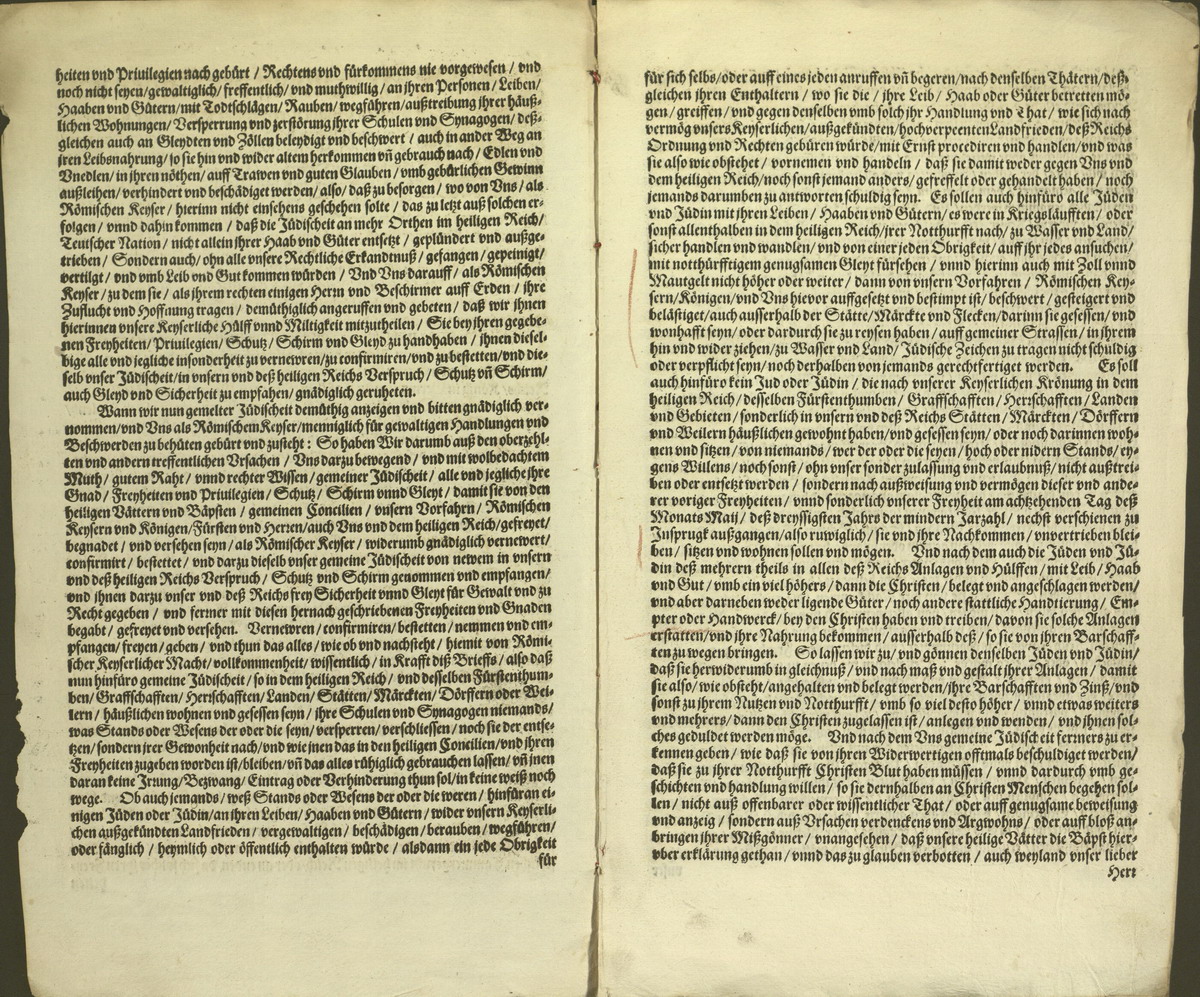 heiten vnd Priuilegien nach gebürt / Rechtens vnd fürkommens nie vorgewesen / vnd
noch nicht seyen/gewaltiglich/ freffentlich/ vnd muthwillig / an jhren Personen / Leiben/
Haaben vnd Gütern/mit Todtschlägen/ Rauben/ wegführen/außtreibung jhrer häuß-
lichen Wohnungen/ Versperrung vnd zerstörung jhrer Schulen vnd Synagogen/ deß-
gleichen auch an Gleydten vnd Zöllen beleydigt vnd beschwert / auch in ander Weg an
jren Leibsnahrung/ so sie hin vnd wider altem herkommen vñ gebrauch nach / Edlen vnd
Vnedlen / in jhren nöthen/ auff Trawen vnd guten Glauben / vmb gebürlichen Gewinn
außleihen/ verhindert vnd beschädiget werden/ also/ daß zu besorgen / wo von Vns / als
Römischen Keyser / hierinn nicht einsehens geschehen solte / das zu letzt auß solchen er-
folgen / vnnd dahin kommen / daß die Jüdischeit an mehr Orthen im heiligen Reich/
Teutscher Nation / nicht allein jhrer Haab vnd Güter entsetzt / geplündert vnd außge-
trieben / Sondern auch / ohn alle vnsere Rechtliche Erkandtnuß / gefangen / gepeinigt/
vertilgt / vnd vmb Leib vnd Gut kommen würden / Vnd Vns darauff / als Römischen
Keyser / zu dem sie / als jhrem rechten einigen Herrn vnd Beschirmer auff Erden / jhre
Zuflucht vnd Hoffnung tragen / demüthiglich angeruffen vnd gebeten / daß wir jhnen
hierinnen vnsere Keyserliche Hülff vnnd Miltigkeit mitzutheilen / Sie bey jhren gegebe-
nen Freyheiten/ Priuilegien / Schutz / Schirm vnd Gleyd zu handhaben / jhnen diesel-
bige alle vnd jegliche insonderheit zu vernewren/zu confirmiren/vnd zu bestetten/vnd die-
selb vnser Jüdischeit/in vnsern vnd deß heiligen Reichs Verspruch / Schutz vñ Schirm/
auch Gleyd vnd Sicherheit zu empfahen/ gnädiglich geruheten.
Wann wir nun gemelter Jüdischeit demüthig anzeigen vnd bitten gnädiglich ver-
nommen/ vnd Vns als Römischen Keyser/menniglich für gewaltigen Handlungen vnd
Beschwerden zu behüten gebürt vnd zusteht : So haben Wir darumb auß den oberzehl-
ten vnd andern treffentlichen Vrsachen / Vns darzu bewegend / vnd mit wolbedachtem
Muth / gutem Raht / vnnd rechter Wissen / gemeiner Jüdischeit / alle vnd jegliche jhre
Gnad / Freyheiten vnd Priuilegien / Schutz / Schirm vnnd Gleyt / damit sie von den
heiligen Vättern vnd Bäpsten / gemeinen Concilien / vnsern Vorfahrn / Römischen
Keysern vnd Königen/ Fürsten vnd Herren/auch Vns vnd dem heiligen Reich/gefreyet/
begnadet / vnd versehen seyn / als Römischer Keyser / widerumb gnädiglich vernewert/
confirmirt / bestettet / vnd darzu dieselb vnser gemeine Jüdischeit von newem in vnsern
vnd deß heiligen Reichs Verspruch / Schutz vnd Schirm genommen vnd empfangen/
vnd jhnen darzu vnser vnd deß Reichs frey Sicherheit vnnd Gleyt für Gewalt vnd zu
Recht gegeben / vnd ferrner mit diesen hernach geschriebenen Freyheiten vnd Gnaden
begabt / gefreyet vnd versehen. Vernewren / confirmiren/ bestetten / nemmen vnd em-
pfangen/ freyen / geben / vnd thun das alles / wie ob vnd nachsteht / hiemit von Römi-
scher Keyserlicher Macht / vollkommenheit / wissentlich / in Krafft diß Brieffs / also daß
nun hinfüro gemeine Jüdischeit / so in dem heiligen Reich / vnd desselben Fürstenthum-
ben/ Graffschafften / Herrschafften / Landen / Stätten / Märckten / Dörffern oder Wei-
lern / häußlichen wohnen vnd gesessen seyn / jhre Schulen vnd Synagogen niemands/
was Stands oder Wesens der oder die seyn / versperren / verschliessen / noch sie der entse-
tzen/ sondern jrer Gewonheit nach/ vnd wie jnen das in den heiligen Concilien/vnd jhren
Freyheiten zugeben worden ist/bleiben/ vñ das alles rühiglich gebrauchen lassen/ vñ jnen
daran keine Irrung/ Bezwang / Eintrag oder Verhinderung thun sol/ in keine weiß noch
wege. Ob auch jemands / weß Stands oder Wesens der oder die weren / hinfüran ei-
nigen Jüden oder Jüdin/ an jhren Leiben/ Haaben vnd Gütern / wider vnsern Keyserli-
chen außgekündten Landfrieden / vergewaltigen / beschädigen / berauben / wegführen/
oder fänglich / heymlich oder öffentlich enthalten würde / alsdann ein jede Obrigkeit
für
für sich selbs/oder auff eines jeden anruffen vñ begeren/nach denselben Thätern/deß-
gleichen jhren Enthaltern / wo sie die / jhre Leib / Haab oder Güter betretten mö-
gen / greiffen / vnd gegen denselben vmb solch jhr Handlung vnd That / wie sich nach
vermög vnsers Keyserlichen/außgekündten/hochverpeenten Landfrieden/deß Reichs
Ordnung vnd Rechten gebüren würde/mit Ernst procediren vnd handlen/vnd was
sie also wie obstehet / vornemen vnd handeln / daß sie damit weder gegen Vns vnd
dem heiligen Reich/noch sonst jemand anders/ gefreffelt oder gehandelt haben / noch
jemands darumben zu antworten schuldig seyn. Es sollen auch hinfüro alle Jüden
vnd Jüdin mit jhren Leiben / Haaben vnd Gütern/ es were in Kriegsläufften / oder
sonst allenthalben in dem heiligen Reich/jrer Notthurfft nach/ zu Wasser vnd Land/
sicher handlen vnd wandlen/ vnd von einer jeden Obrigkeit/ auff jhr jedes ansuchen/
mit notthürfftigem genugsamen Gleyt fürsehen / vnnd hierinn auch mit Zoll vnnd
Mautgelt nicht höher oder weiter / dann von vnsern Vorfahren / Römischen Key-
sern/Königen/ vnd Vns hievor auffgesetzt vnd bestimpt ist/ beschwert / gesteigert vnd
belästiget/auch ausserhalb der Stätte/Märckte vnd Flecken/darinn sie gesessen/ vnd
wonhafft seyn/ oder dardurch sie zu reysen haben/ auff gemeiner Strassen / in jhrem
hin vnd wider ziehen/zu Wasser vnd Land/ Jüdische Zeichen zu tragen nicht schuldig
oder verpflicht seyn/noch derhalben von jemands gerechtfertiget werden. Es soll
auch hinfüro kein Jud oder Jüdin / die nach vnserer Keyserlichen Krönung in dem
heiligen Reich/desselben Fürstenthumben / Graffschafften / Herrschafften / Landen
vnd Gebieten / sonderlich in vnsern vnd deß Reichs Stätten / Märckten / Dörffern
vnd Weilern häußlichen gewohnt haben/vnd gesessen seyn/ oder noch darinnen woh-
nen vnd sitzen/ von niemands / wer der oder die seyen / hoch oder nidern Stands / ey-
gens Willens / noch sonst / ohn vnser sonder zulassung vnd erlaubnuß/ nicht außtrei-
ben oder entsetzt werden / sondern nach außweisung vnd vermögen dieser vnd ande-
rer voriger Freyheiten / vnnd sonderlich vnserer Freyheit am achtzehenden Tag deß
Monats Maij / deß dreyssigsten Jahrs der mindern Jarzahl / nechst verschienen zu
Insprugk außgangen/also ruwiglich / sie vnd jhre Nachkommen / vnvertrieben blei-
ben / sitzen vnd wohnen sollen vnd mögen. Vnd nach dem auch die Jüden vnd Jü-
din deß mehrern theils in allen deß Reichs Anlagen vnd Hülffen / mit Leib / Haab
vnd Gut / vmb ein viel höhers / dann die Christen / belegt vnd angeschlagen werden/
vnd aber darneben weder ligende Güter / noch andere stattliche Handtierung / Em-
pter oder Handwerck / bey den Christen haben vnd treiben / davon sie solche Anlagen
erstatten/vnd jhre Nahrung bekommen / ausserhalb deß / so sie von jhren Barschaff-
ten zu wegen bringen. So lassen wir zu / vnd gönnen denselben Jüden vnd Jüdin/
daß sie herwiderumb in gleichnuß / vnd nach maß vnd gestalt jhrer Anlagen / damit
sie also / wie obsteht/angehalten vnd belegt werden/jhre Barschafften vnd Zinß/vnd
sonst zu jhrem Nutzen vnd Notthurfft / vmb so viel desto höher / vnnd etwas weiters
vnd mehrers / dann den Christen zugelassen ist / anlegen vnd wenden / vnd jhnen sol-
ches geduldet werden möge. Vnd nach dem Vns gemeine Jüdischeit ferrners zu er-
kennen geben / wie daß sie von jhren Widerwertigen offtmals beschuldiget werden/
daß sie zu jhrer Notthurfft Christen Blut haben müssen / vnnd dardurch vmb ge-
schichten vnd handlung willen / so sie dernhalben an Christen Menschen begehen sol-
len / nicht auß offenbarer oder wissentlicher That / oder auff genugsame beweisung
vnd anzeig / sondern auß Vrsachen verdenckens vnd Argwohns / oder auff bloß an-
bringen jhrer Mißgönner / vnangesehen / daß vnsere heilige Vätter die Bäpst hier-
vber erklärung gethan / vnnd das zu glauben verbotten / auch weyland vnser lieber
Herr